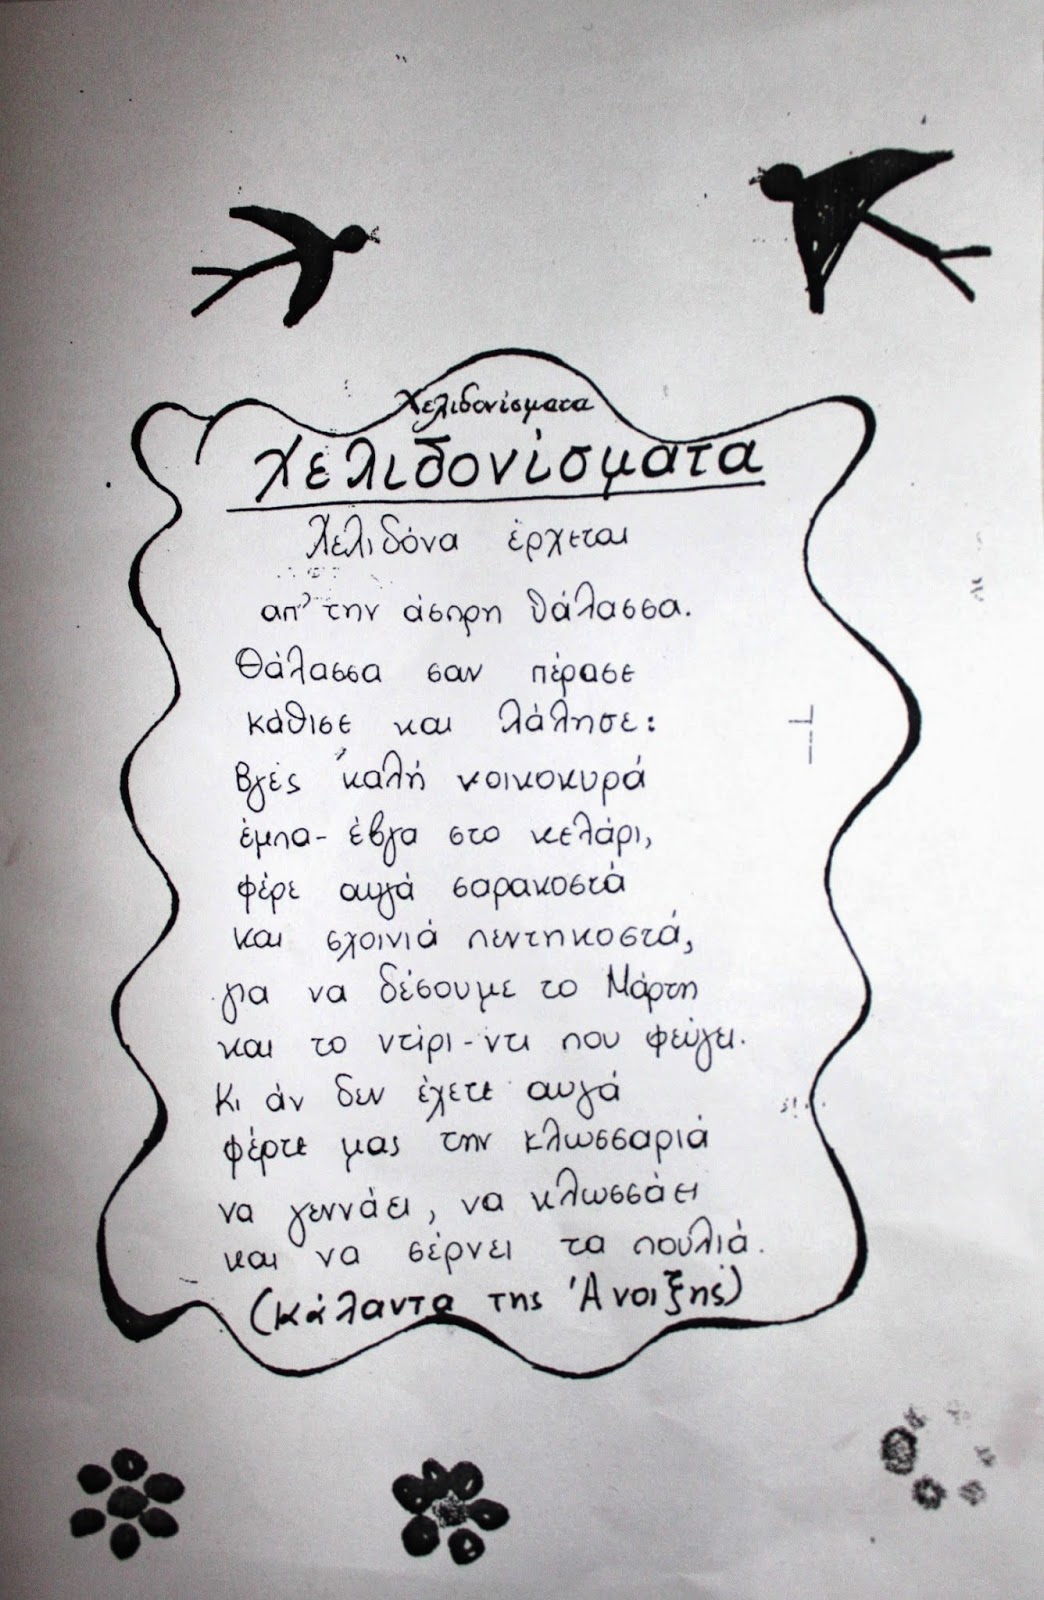 Χελιδονίσματα
Χελιδονίσματα
Χελιδόνα έρχεται
απ' την άσπρη θάλασσα.
Θάλασσα σαν πέρασε
κάθισε και λάλησε:
Βγες καλή νοικοκυρά
έμπα-έβγα στο κελάρι,
φέρε αυγά σαρακοστά
και σχοινιά πεντηκοστά,
για να δέσουμε το Μάρτη
και το ντίρι-ντι που φεύγει.
Κι άν δεν έχετε αυγά
φέρτε μας την κλωσσαριά
να γεννάει, να κλωσσάει
και να σέρνει τα πουλιά.
(κάλαντα της Άνοιξης)